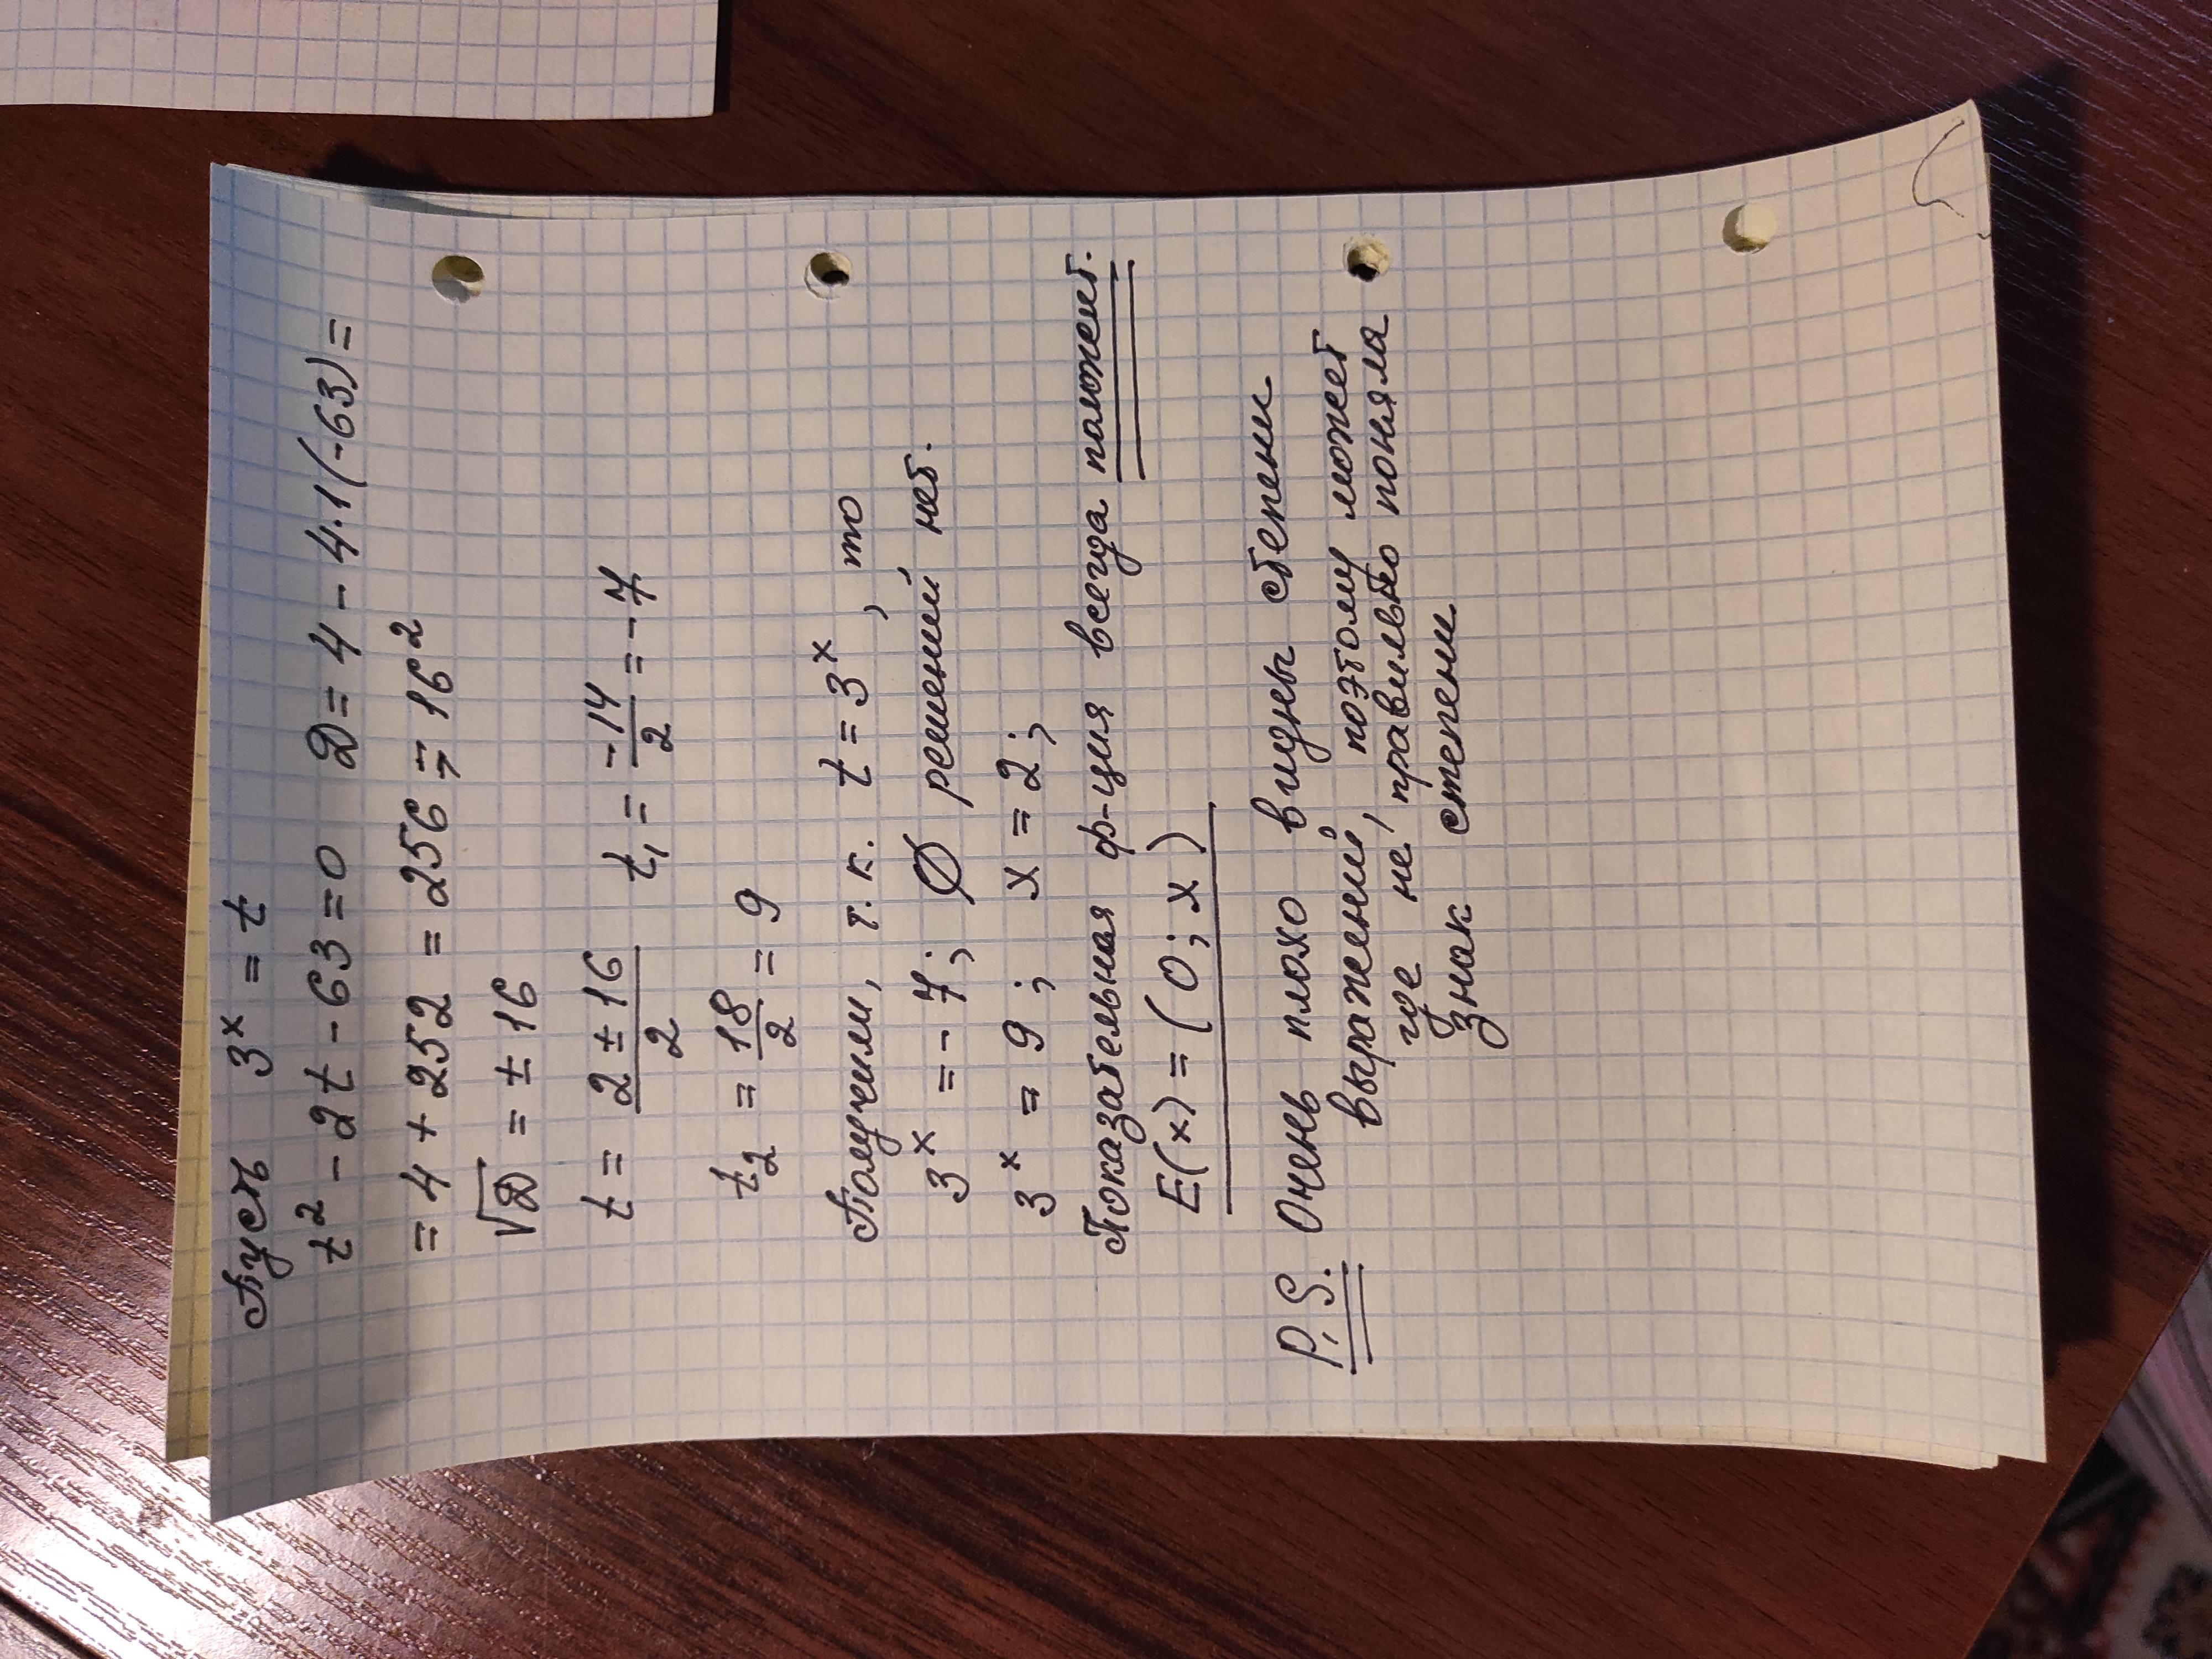 Пусть 3ˣ = t
t² - 2t - 63 = 0 D = 4 - 4·1(-63) =
= 4 + 252 = 256 = 16²
√D = ± 16
t = (2 ± 16)/2 t₁ = -14/2 = -7
t₂ = 18/2 = 9
Получим, т.к. t = 3ˣ, то
3ˣ = -7; ∅ решений нет.
3ˣ = 9; x = 2;
Показательная ф-ция всегда положит.
E(x) = (0; x)
P.S. Очень плохо видны степени
выражений, поэтому может
где не правильно поняла
знак степени